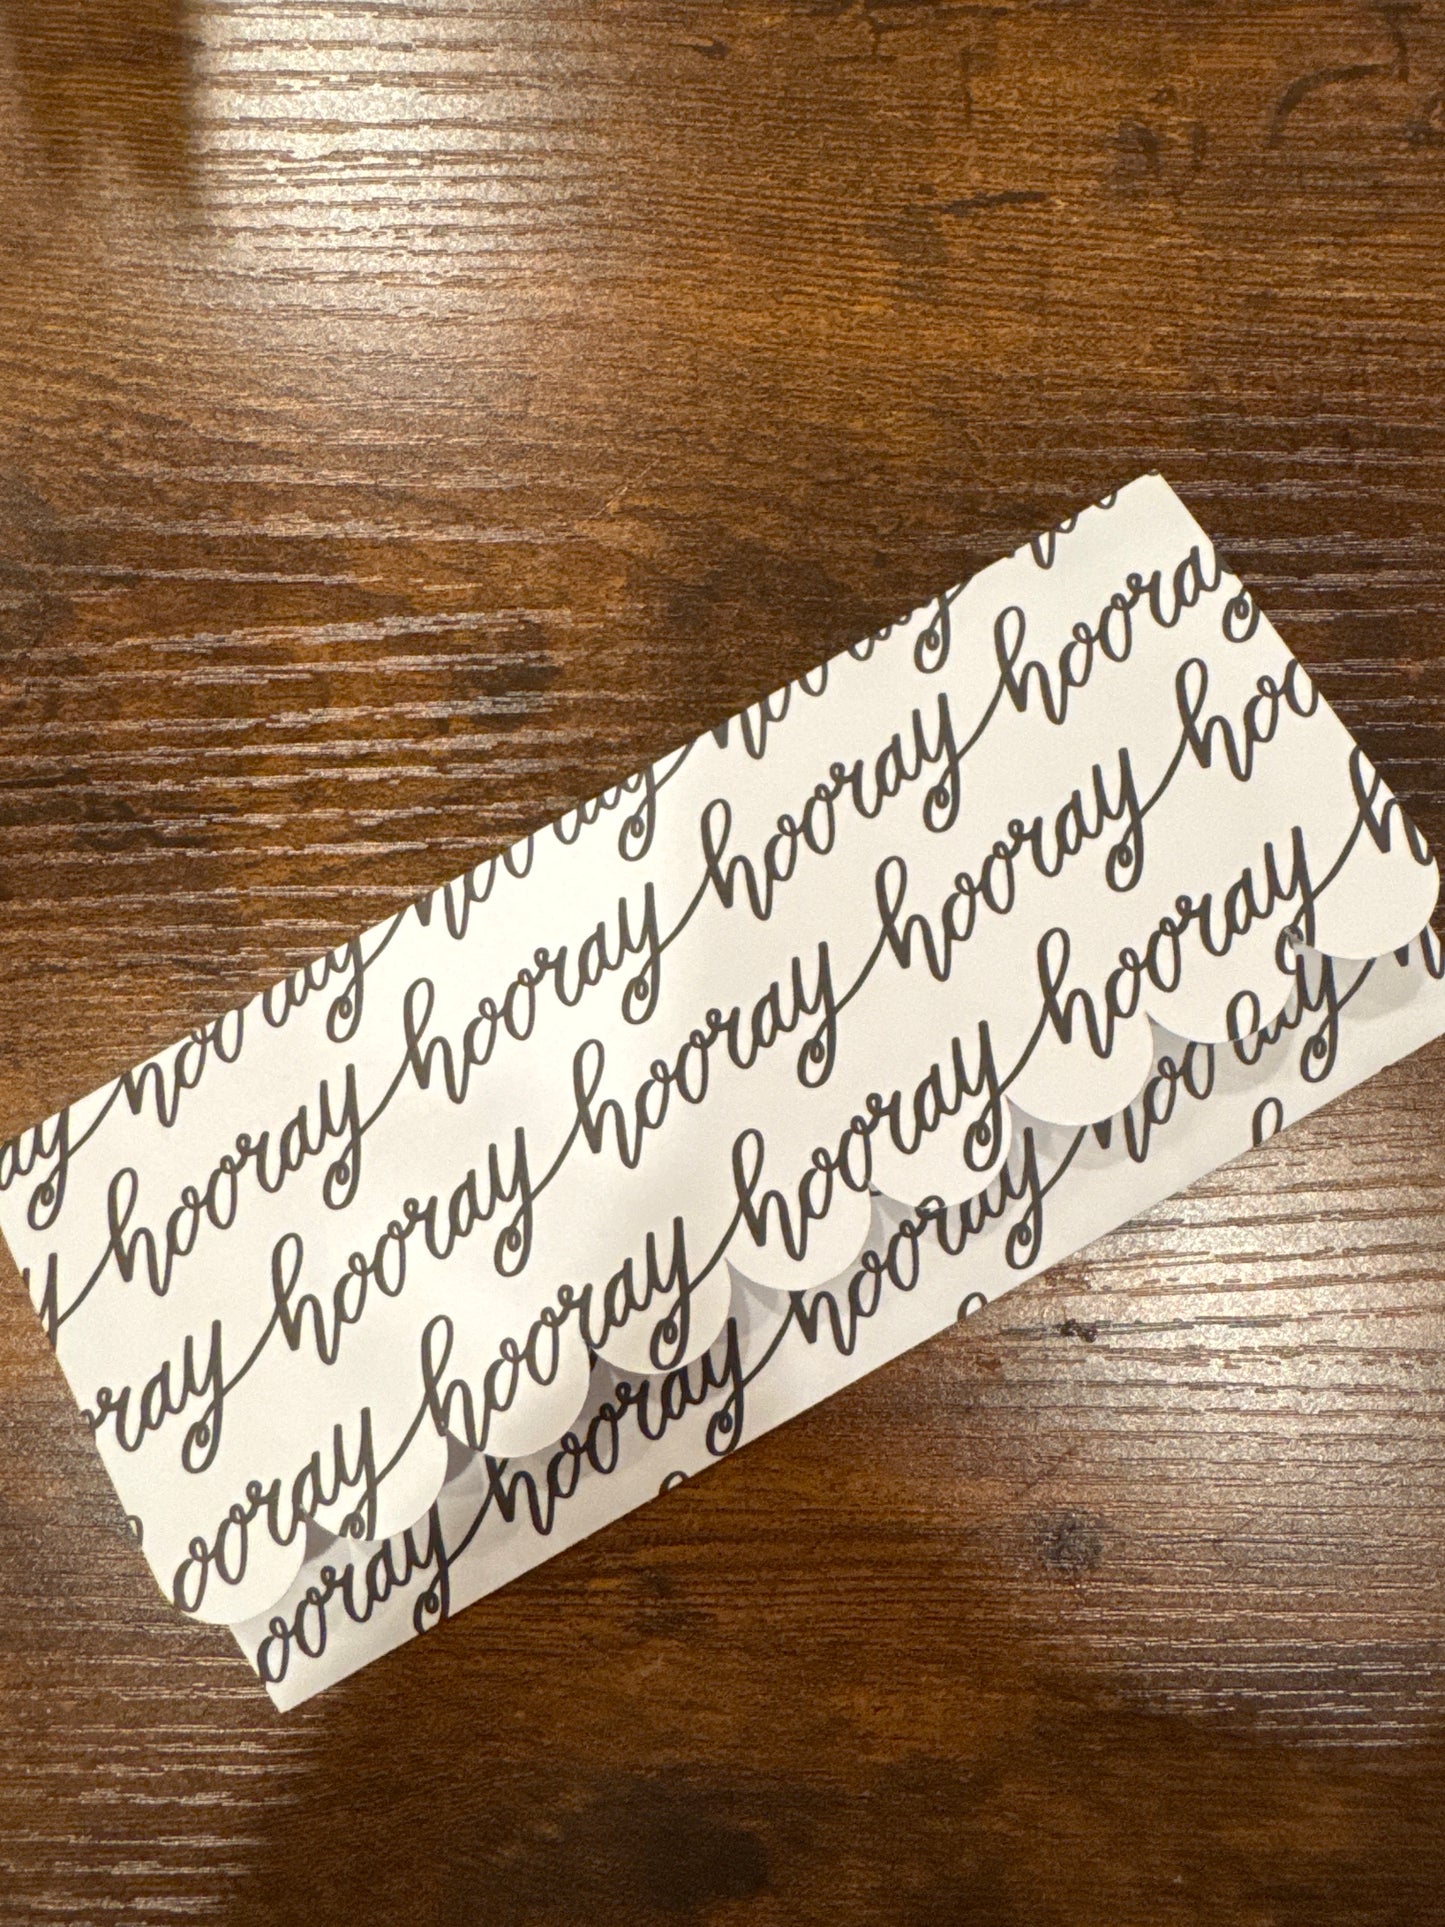 hooray hooray hooray
hooray hooray hooray hooray
hooray hooray hooray hooray
hooray hooray hooray
hooray hooray hooray